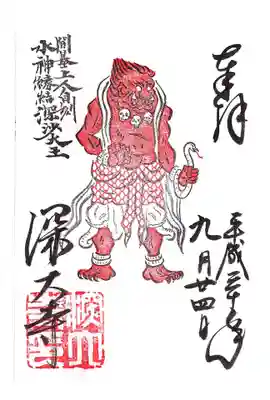 奉拝
平成二十年
九月廿四日
開基上人自刻
水神縁結深沙大王
深大寺